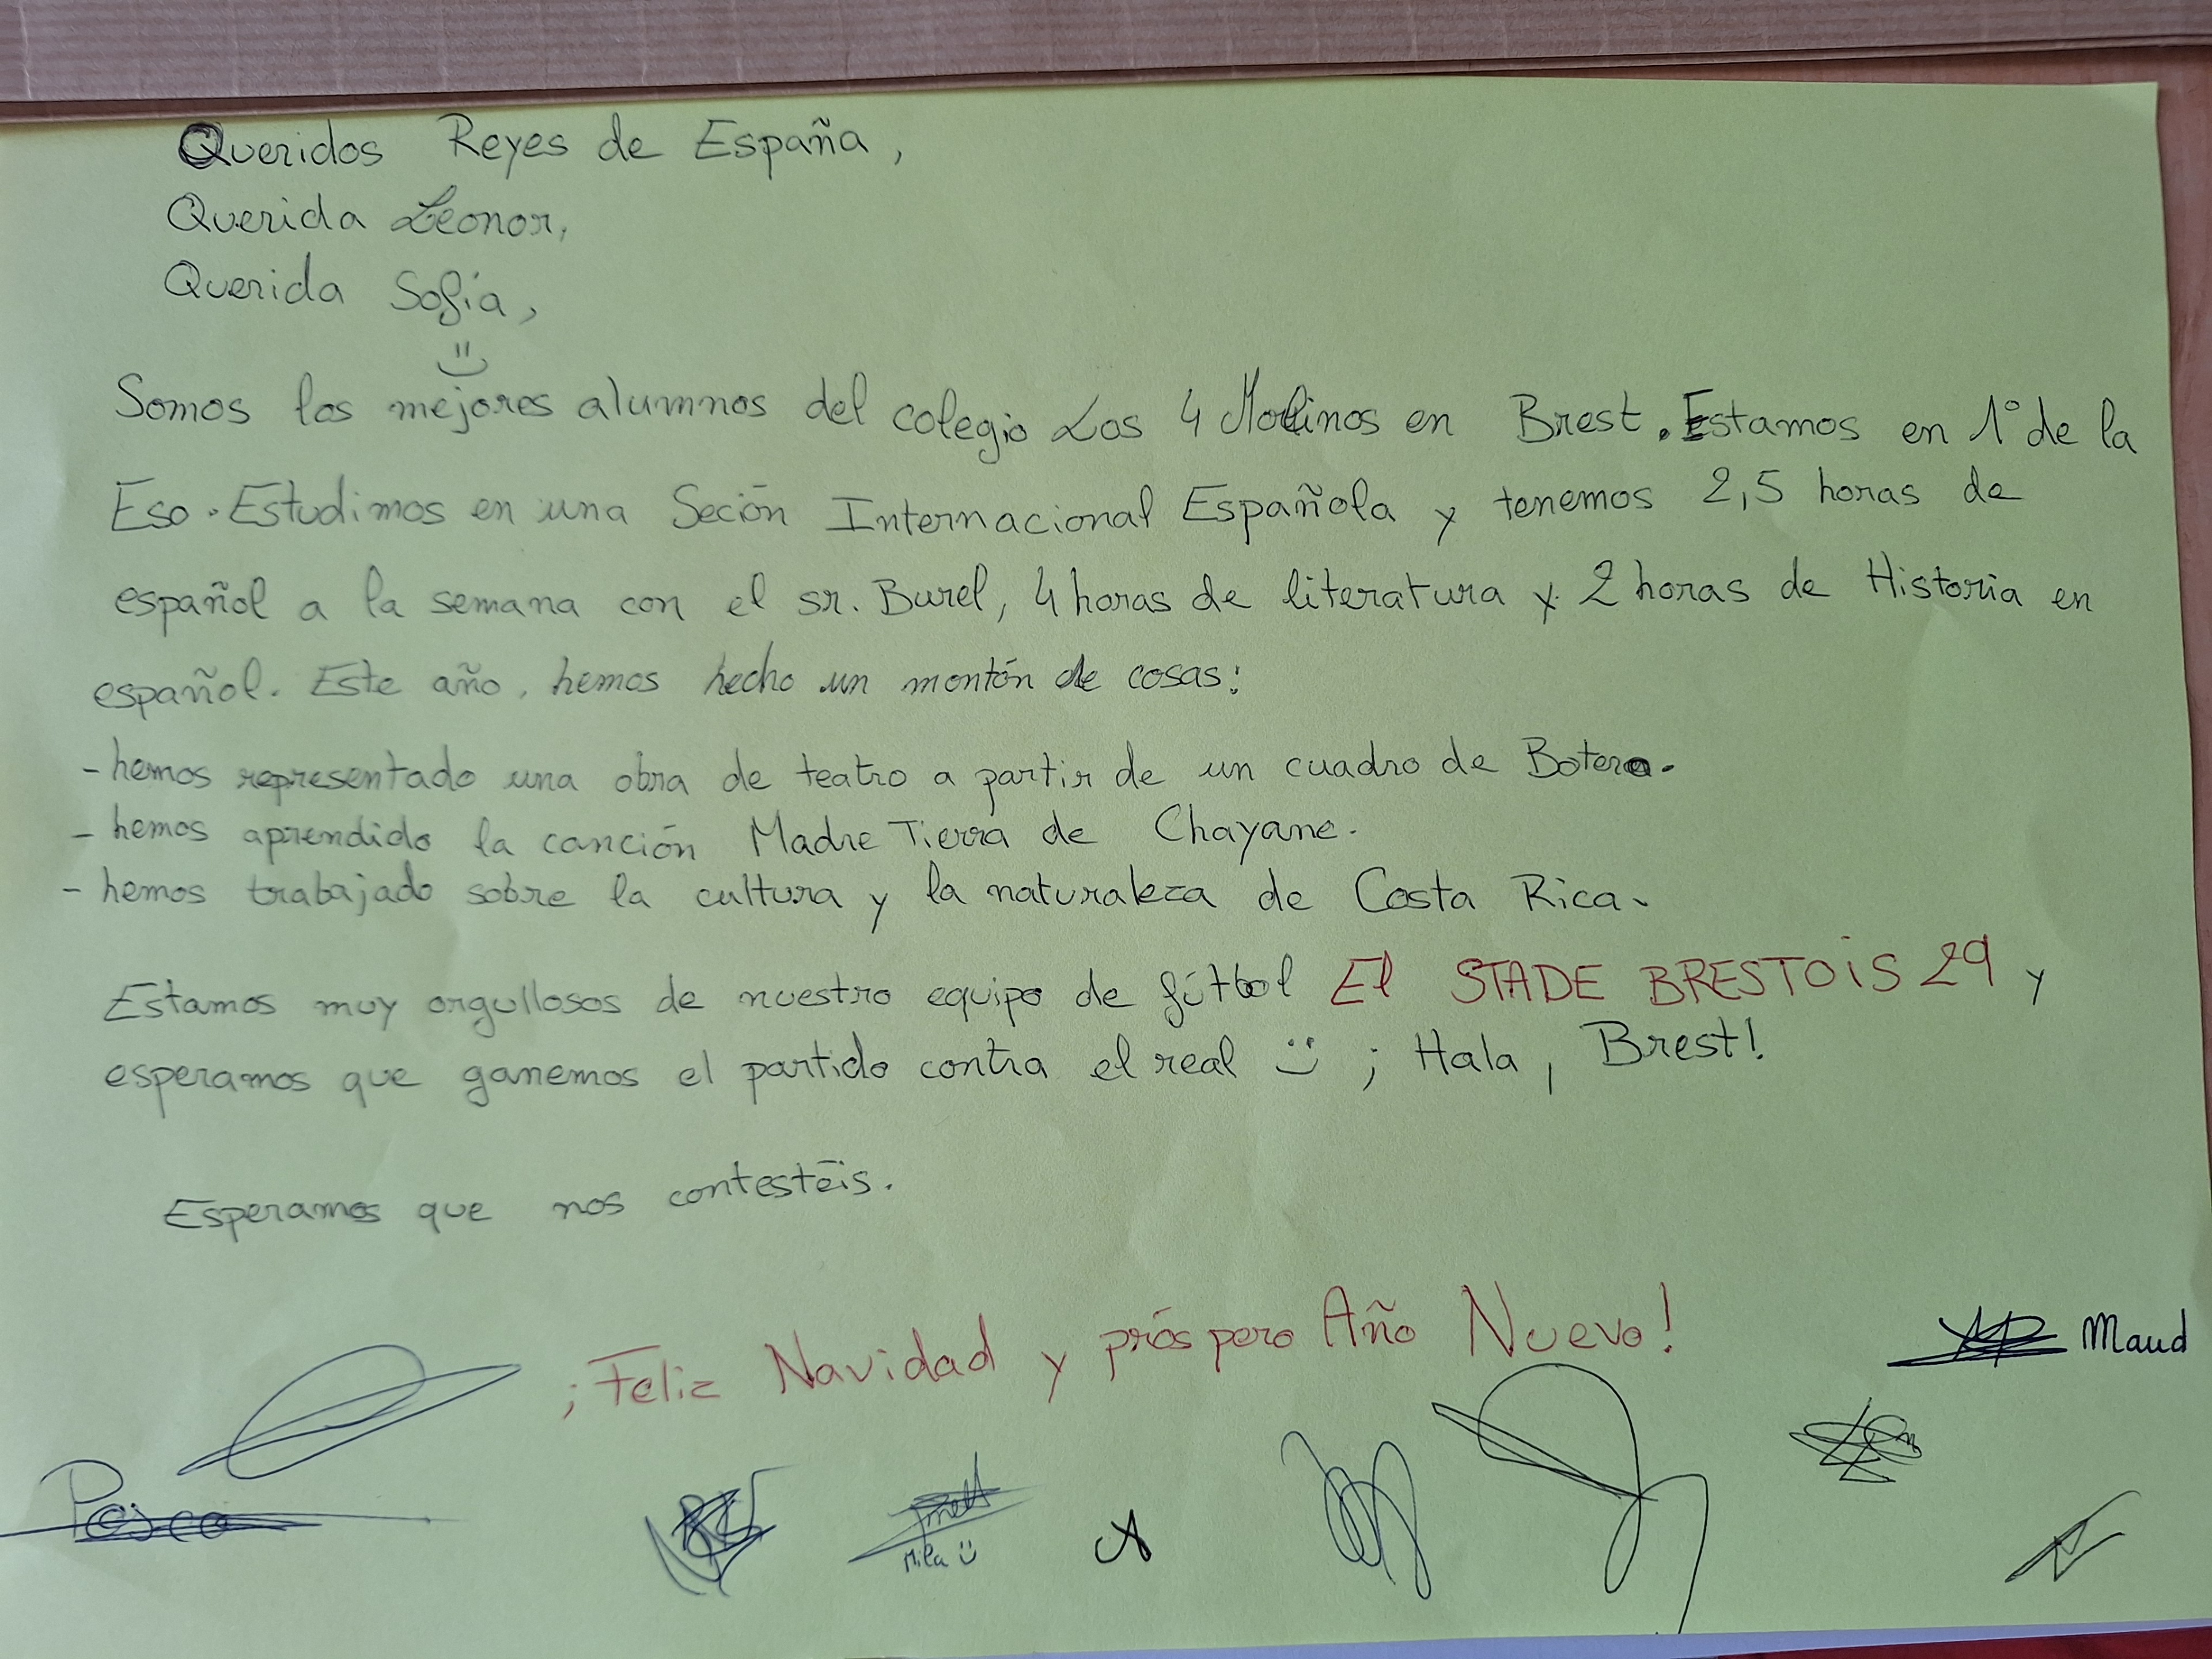 Queridos Reyes de España,
Querida Leonor,
Querida Sofía,
Somos los mejores alumnos del colegio Los 4 Molinos en Brest. Estamos en 1° de la
Eso. Estudimos en una Seción Internacional Española y tenemos 2,5 horas de
español a la semana con el sr. Burel, 4 horas de literatura y 2 horas de Historia en
español. Este año, hemos hecho un montón de cosas:
- hemos representado una obra de teatro a partir de un cuadro de Botero.
- hemos aprendido la canción Madre Tierra de Chayane.
- hemos trabajado sobre la cultura y la naturaleza de Costa Rica.
Estamos muy orgullosos de nuestro equipo de fútbol El STADE BRESTOIS 29 y
esperamos que ganemos el partido contra el real ¡Hala, Brest!
Esperamos que nos contestéis.
¡Feliz Navidad y próspero Año Nuevo!
Maud
Mila